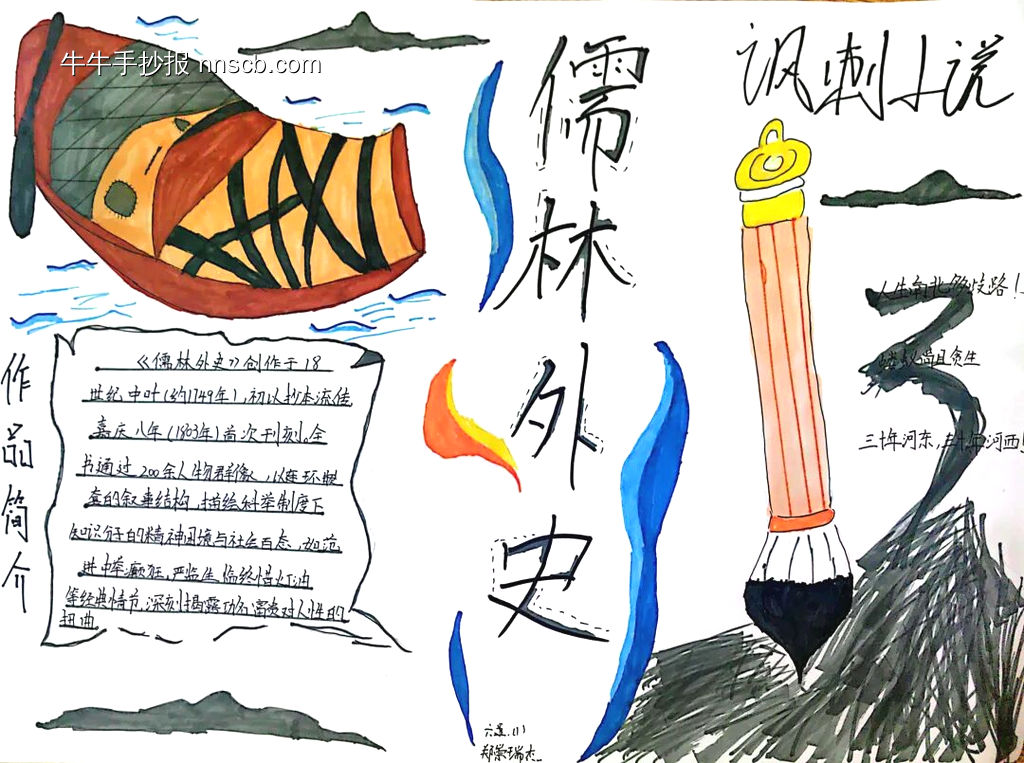 牛牛手抄报 nnscb.com
讽刺小说
儒林外史
作品简介
《儒林外史》创作于18
世纪中叶(约1749年),初以抄本流传
嘉庆八年(1803年)首次刊刻。全
书通过200余人物群像,以连环嵌
套的叙事结构,描绘科举制度下
知识分子的精神困境与社会百态,如范
进中举癫狂,严监生临终惜灯油
等经典情节,深刻揭露功名富贵对人性的
扭曲
人生南北多歧路!
蝼蚁尚且贪生
三十年河东,三十年河西!